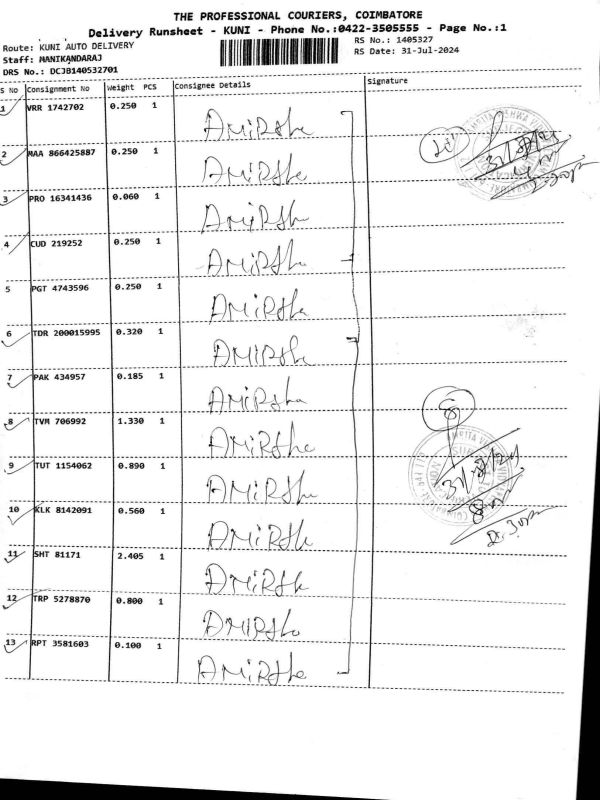 THE PROFESSIONAL COURIERS, COIMBATORE
Delivery Runsheet - KUNI - Phone No.:0422-3505555 - Page No.:1
Route: KUNI AUTO DELIVERY
RS No.: 1405327
Staff: MANIKANDARAJ
RS Date: 31-Jul-2024
DRS No.: DCJB140532701
S No Consignment No Weight PCS Consignee Details Signature
1 VRR 1742702 0.250 1 AMiRSha
2 MAA 866425887 0.250 1 AMiRSha
3 PRO 16341436 0.060 1 AMiRSha
4 CUD 219252 0.250 1 AMiRSha
5 PGT 4743596 0.250 1 AMiRSha
6 TDR 200015995 0.320 1 AMIRSha
7 PAK 434957 0.185 1 AMiRSha
8 TVM 706992 1.330 1 AMiRSha
9 TUT 1154062 0.890 1 AMiRSha
10 KLK 8142091 0.560 1 AMiRSha
11 SHT 81171 2.405 1 AMiRSha
12 TRP 5278870 0.800 1 AMIRSha
13 RPT 3581603 0.100 1 AMiRSha
8